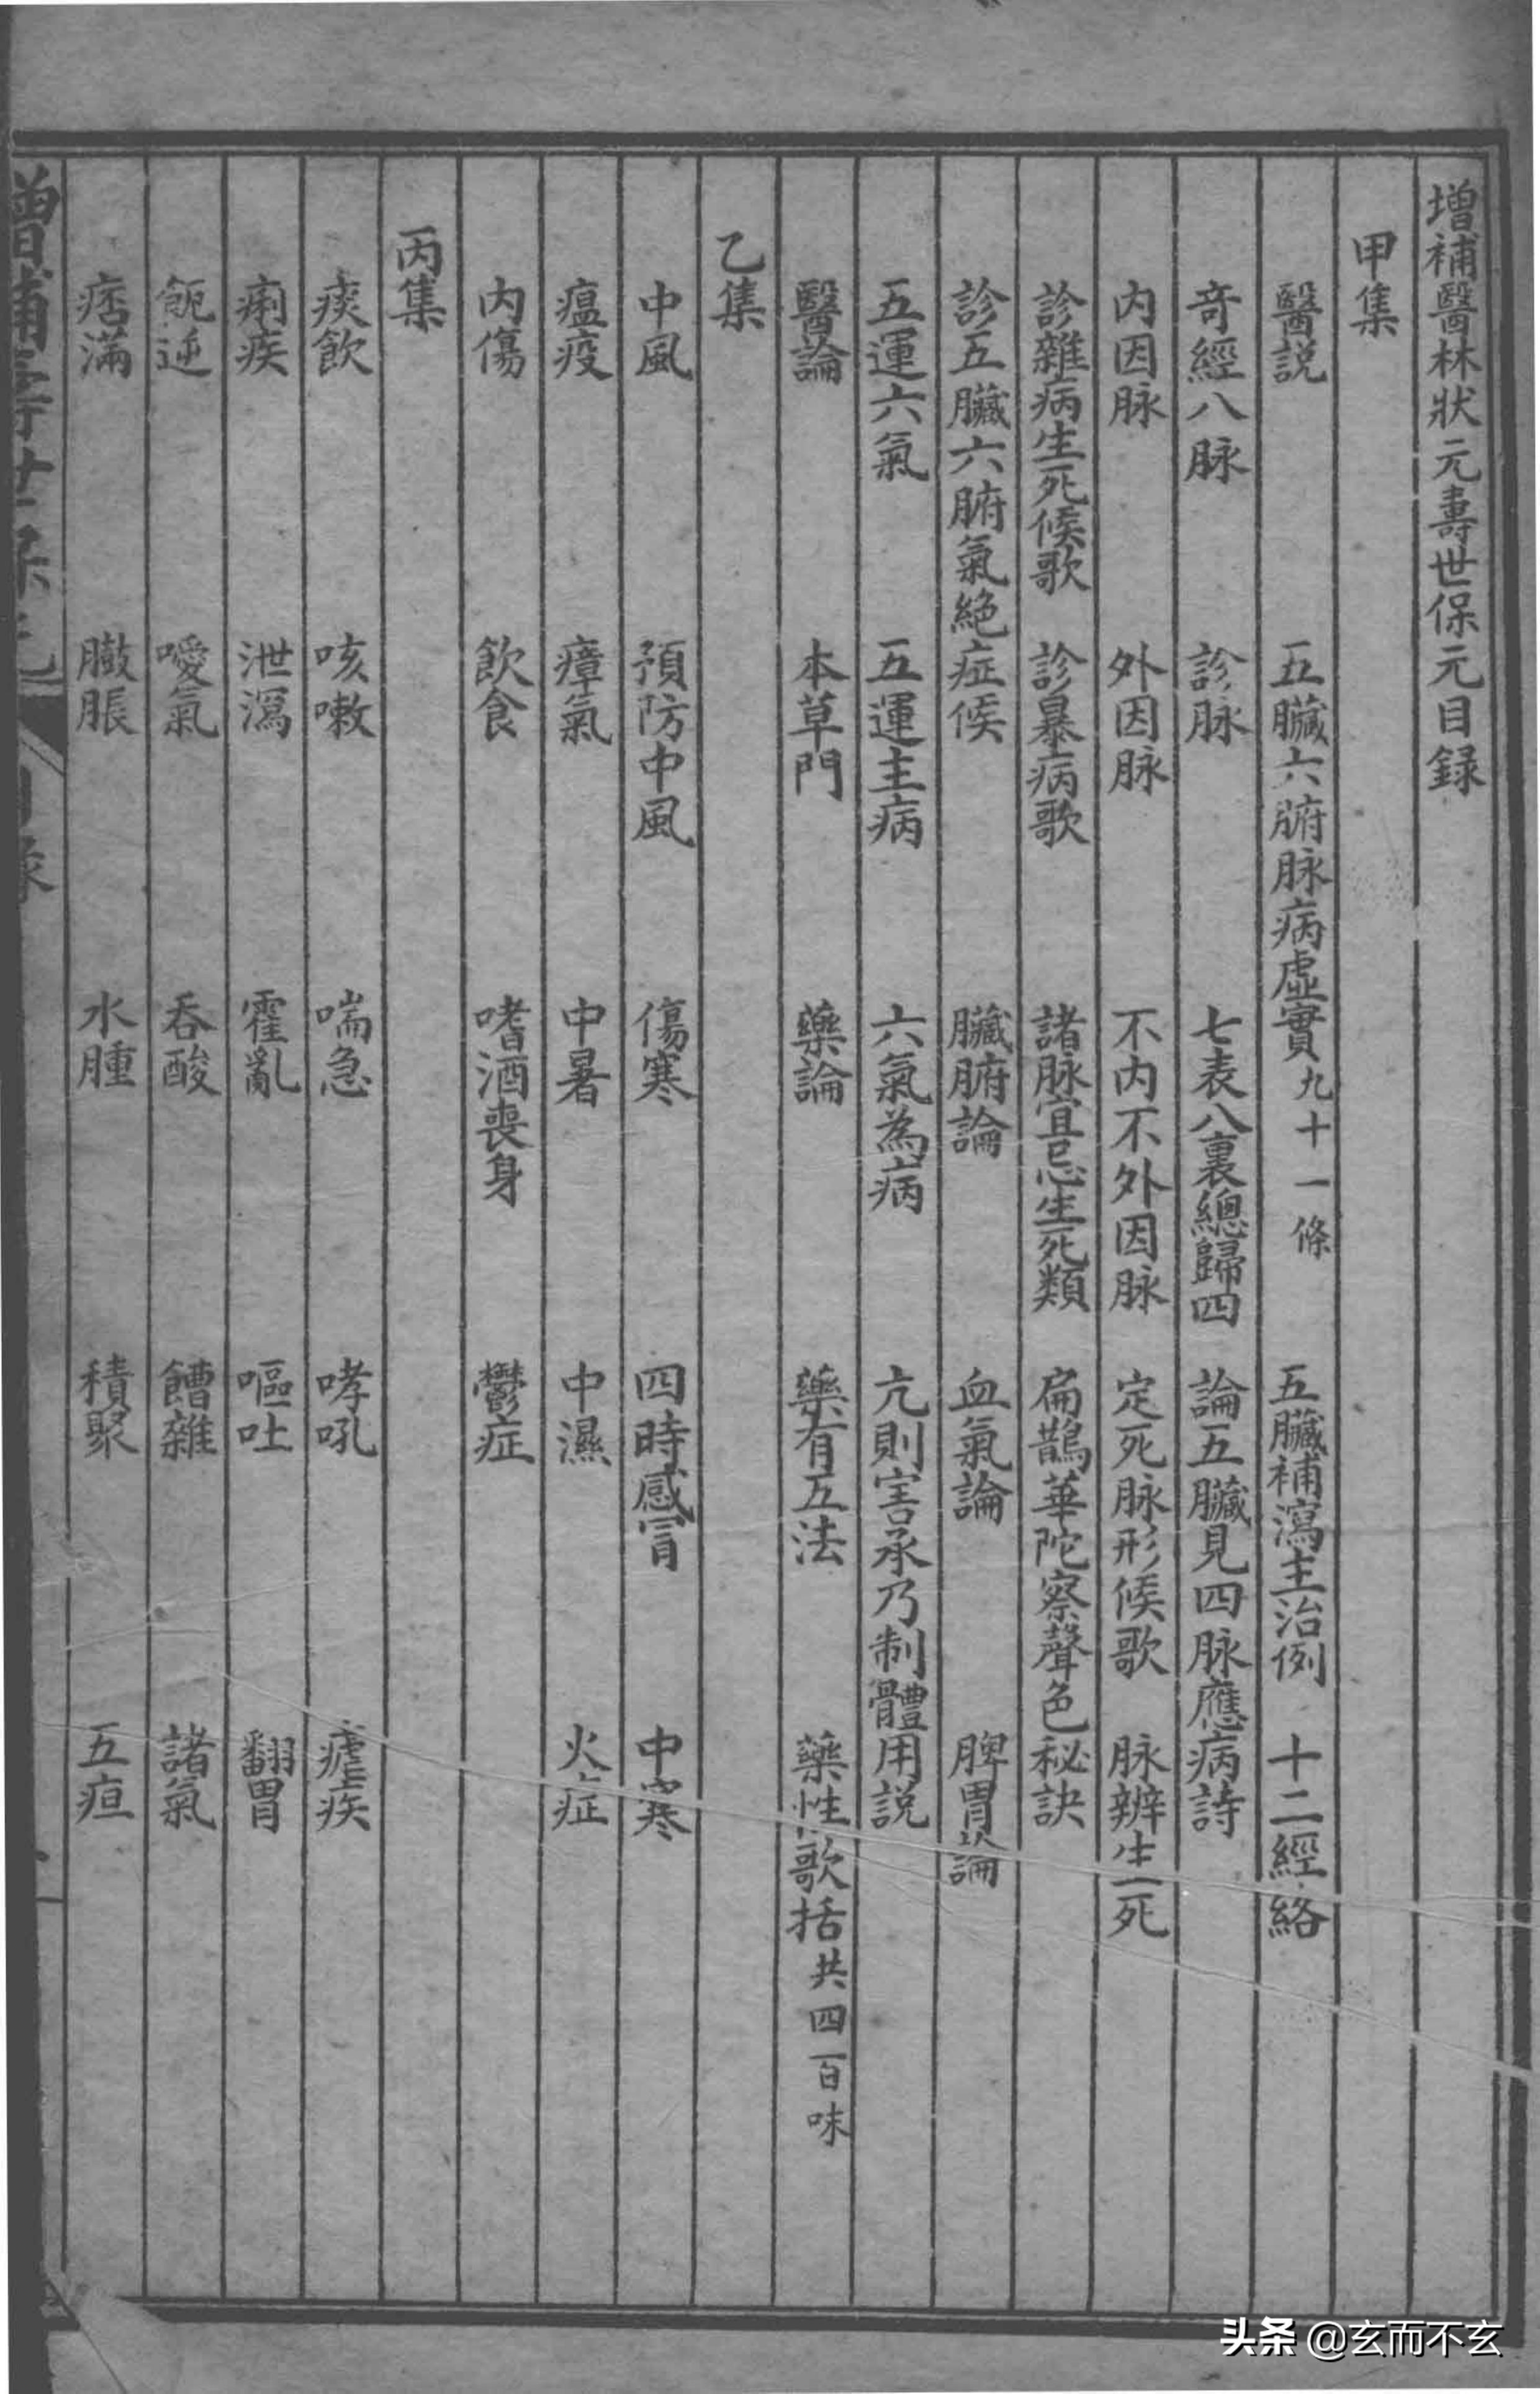 增補醫林狀元壽世保元目録
甲集
醫説 五臟六腑脉病虛實九十一條 五臟補瀉主治例 十二經絡
奇經八脉 診脉 七表八裏總歸四 論五臟見四脉應病詩
内因脉 外因脉 不内不外因脉 定死脉形候歌 脉辨生死
診雜病生死候歌 診暴病歌 諸脉宜忌生死類 扁鵲華陀察聲色秘訣
診五臟六腑氣絶症候 臟腑論 血氣論 脾胃論
五運六氣 五運主病 六氣為病 亢則害承乃制體用説
醫論 本草門 藥論 藥有五法 藥性歌括共四百味
乙集
中風 預防中風 傷寒 四時感冒 中寒
瘟疫 瘴氣 中暑 中濕 火症
内傷 飲食 嗜酒喪身 鬱症
丙集
痰飲 咳嗽 喘急 哮吼 瘧疾
痢疾 泄瀉 霍亂 嘔吐 翻胃
呃逆 噯氣 吞酸 饐雜 諸氣
痞滿 臌脹 水腫 積聚 五疸
增補壽世保元 目錄
头条 @玄而不玄